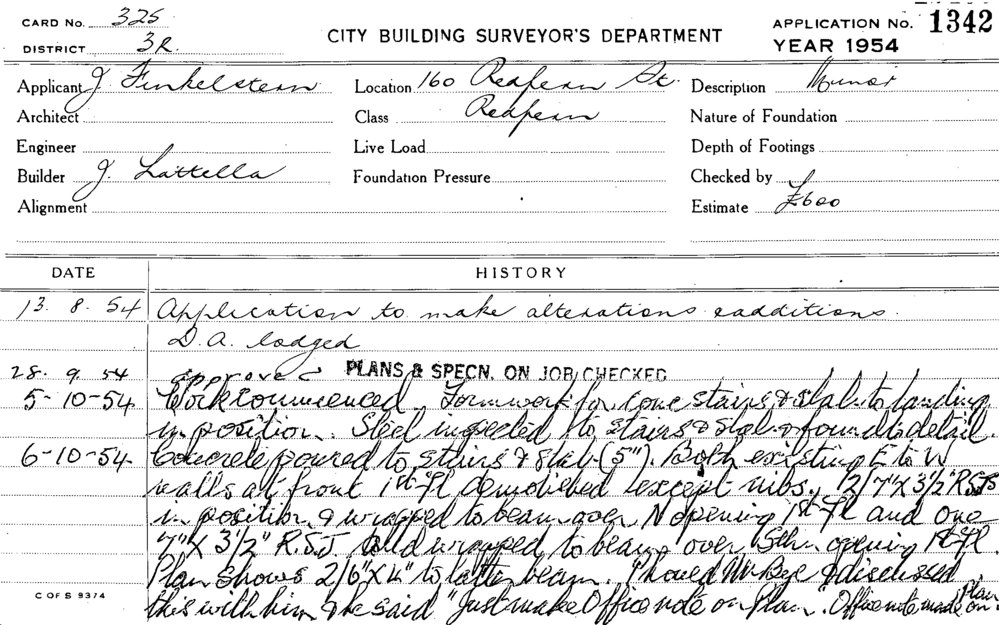 CARD No. 325
DISTRICT 3R.
CITY BUILDING SURVEYOR'S DEPARTMENT
APPLICATION No. 1342
YEAR 1954
Applicant J. Finkelstein Location 160 Redfern St. Description Minor
Architect Class Redfern Nature of Foundation
Engineer Live Load Depth of Footings
Builder J. Lattella Foundation Pressure Checked by
Alignment Estimate £600
DATE HISTORY
13. 8. 54 Application to make alterations & additions.
D.A. lodged
28. 9. 54 approved PLANS & SPECN. ON JOB CHECKED
5-10-54. Work commenced. Formwork for conc stairs & slab to landing
in position. Steel inspected to stairs & slab & found to detail.
6-10-54. Concrete poured to stairs & slab (5"). Both existing E to W
walls at front 1st Fl demolished except nibs. 2/7"X3½" RSJs
in position & wrapped to beam over N opening 1st Fl and one
7"X3½" R.S.J. wrapped to beam over Sthn opening 1st Fl.
Plan shows 2/6"X4" to latter beam. Phoned Mr Bye & discussed
this with him & he said "Just make Office note on Plan". Office note made on Plan.
C OF S 9374